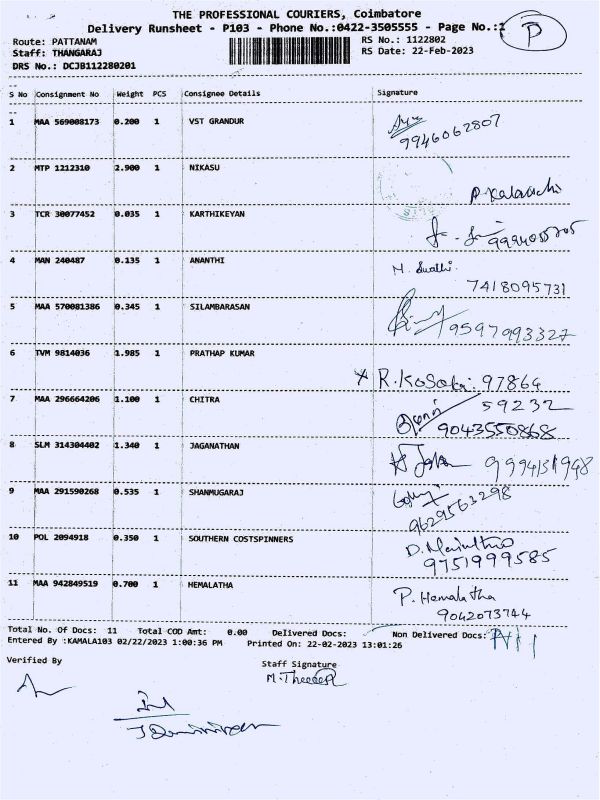 THE PROFESSIONAL COURIERS, Coimbatore
Delivery Runsheet - P103 - Phone No.:0422-3505555 - Page No.:1
P
Route: PATTANAM RS No.: 1122802
Staff: THANGARAJ RS Date: 22-Feb-2023
DRS No.: DCJB112280201
S No Consignment No Weight PCS Consignee Details Signature
1 MAA 569008173 0.200 1 VST GRANDUR
9946062807
2 MTP 1212310 2.900 1 NIKASU
3 TCR 30077452 0.035 1 KARTHIKEYAN
4 MAN 240487 0.135 1 ANANTHI
7418095731
5 MAA 570081386 0.345 1 SILAMBARASAN
9597993327
6 TVM 9814036 1.985 1 PRATHAP KUMAR
97864
7 MAA 296664206 1.100 1 CHITRA 59232
9043550868
8 SLM 314304402 1.340 1 JAGANATHAN
9 MAA 291590268 0.535 1 SHANMUGARAJ
9629563298
10 POL 2094918 0.350 1 SOUTHERN COSTSPINNERS
9751999585
11 MAA 942849519 0.700 1 HEMALATHA P. Hemalatha
9042073744
Total No. Of Docs: 11 Total COD Amt: 0.00 Delivered Docs: Non Delivered Docs:
Entered By :KAMALA103 02/22/2023 1:00:36 PM Printed On: 22-02-2023 13:01:26
Verified By Staff Signature